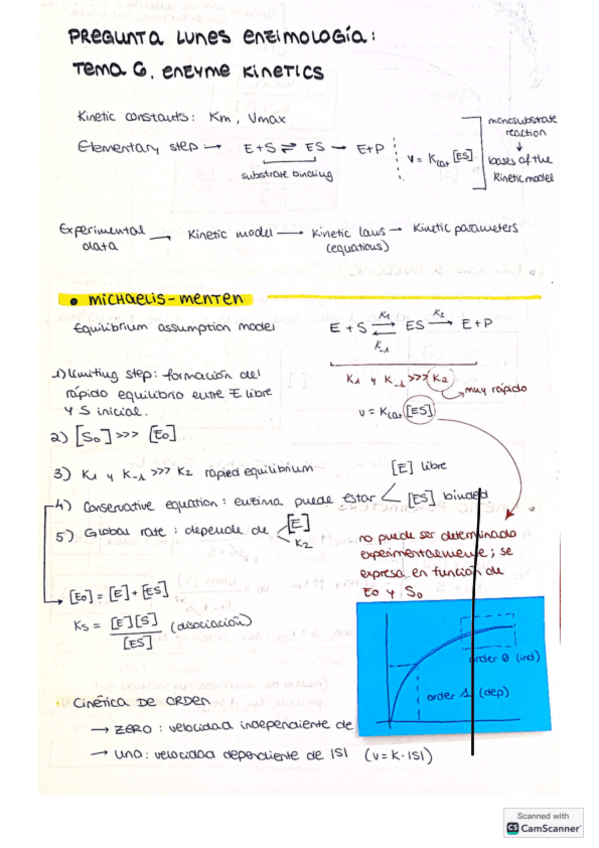 PREGUNTA LUNES ENZIMOLOGÍA:
TEMA 6. ENZYME KINETICS
Kinetic constants: Km, Vmax
Elementary step → E+S ⇌ ES → E+P
substrate binding
v = Kcat [ES]
monosubstrate
reaction
↓
bases of the
kinetic model
Experimental data → Kinetic model → Kinetic laws (equations) → Kinetic parameters
• MICHAELIS-MENTEN
Equilibrium assumption model
E + S ⇌ ES → E+P
K1 K-1 K2
K1 y K-1 >>> K2
muy rápido
v = Kcat [ES]
1) Limiting step: formación del
rápido equilibrio entre E libre
y S inicial.
2) [S0] >>> [E0]
3) K1 y K-1 >>> K2 rapied equilibrium
4) Conservative equation: enzima puede estar < [E] libre
[ES] binded
5) Global rate: depende de < [E]
K2
no puede ser determinado
experimentalmente; se
expresa en función de
E0 y S0
[E0] = [E] + [ES]
Ks = [E][S] / [ES] (disociación)
order 0 (ind)
order 1 (dep)
· CINÉTICA DE ORDEN
→ ZERO: velocidad independiente de
→ uno: velocidad dependiente de |S| (v = K·|S|)
Scanned with
CS CamScanner